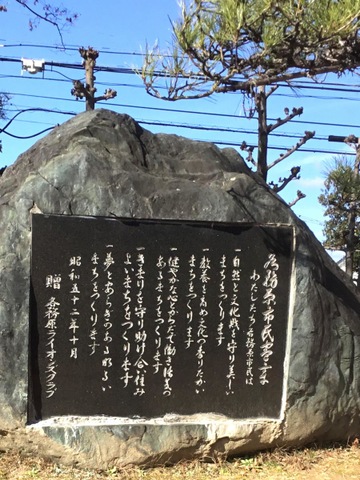 各務原市民憲章
わたしたち各務原市民は
一自然と文化財を守り美しい
まちをつくります
一教養を高め文化の香りたかい
まちをつくります
一健やかな心とからだで働き活気の
あるまちをつくります
一きまりを守り助け合い住み
よいまちをつくります
一夢とやすらぎのある明るい
まちをつくります
昭和五十二年十月
贈 各務原ライオンズクラブ